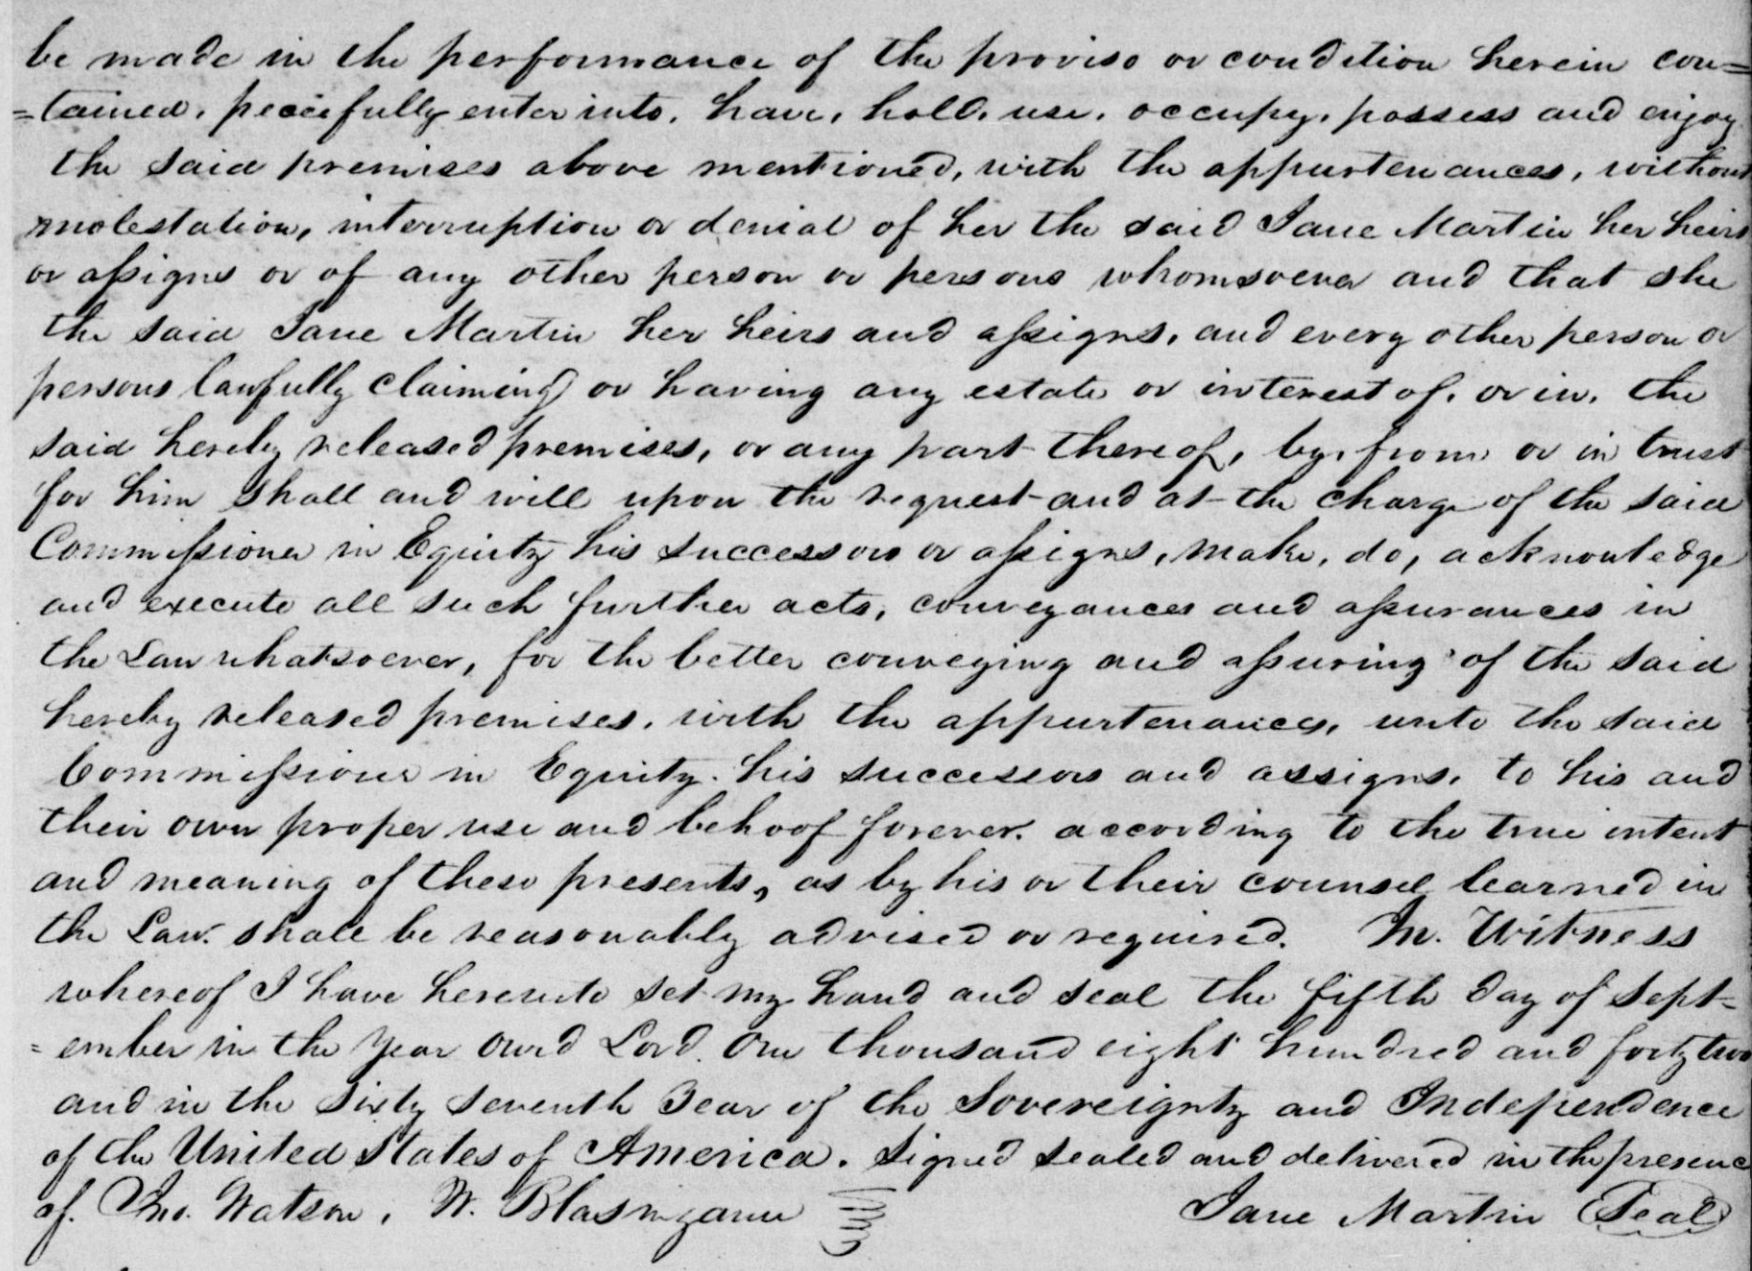 be made in the performance of the proviso or condition herein con=
=tained, peacefully enter into, have, hold, use, occupy, possess and enjoy
the said premises above mentioned, with the appurtenances, without
molestation, interruption or denial of her the said Jane Martin her heirs
or assigns or of any other person or persons whomsoever and that she
the said Jane Martin her heirs and assigns, and every other person or
persons lawfully claiming or having any estate or interest of, or in, the
said hereby released premises, or any part thereof, by, from or in trust
for him shall and will upon the request and at the charge of the said
Commissioner in Equity his successors or assigns, make, do, acknowledge
and execute all such further acts, conveyances and assurances in
the Law whatsoever, for the better conveying and assuring of the said
hereby released premises, with the appurtenances, unto the said
Commissioner in Equity his successors and assigns, to his and
their own proper use and behoof forever. according to the true intent
and meaning of these presents, as by his or their counsel learned in
the Law. shall be reasonably advised or required. In. Witness
whereof I have hereunto set my hand and seal the fifth day of Sept=
=ember in the year Lord. One thousand eight hundred and forty two
and in the Sixty Seventh Year of the Sovereignty and Independence
of the United States of America. Signed Sealed and delivered in the presence
of. Jno. Watson, W. Blassingame Jane Martin Seal